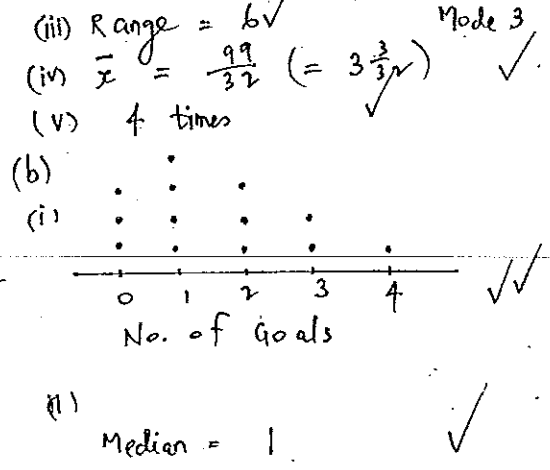 (iii) Range = 6✓ Mode 3
(iv) x̄ = 99/32 (= 3 3/32) ✓ ✓.
(v) 4 times
(b)
(i)
0 1 2 3 4 ✓✓
No. of Goals
(ii)
Median = 1 ✓